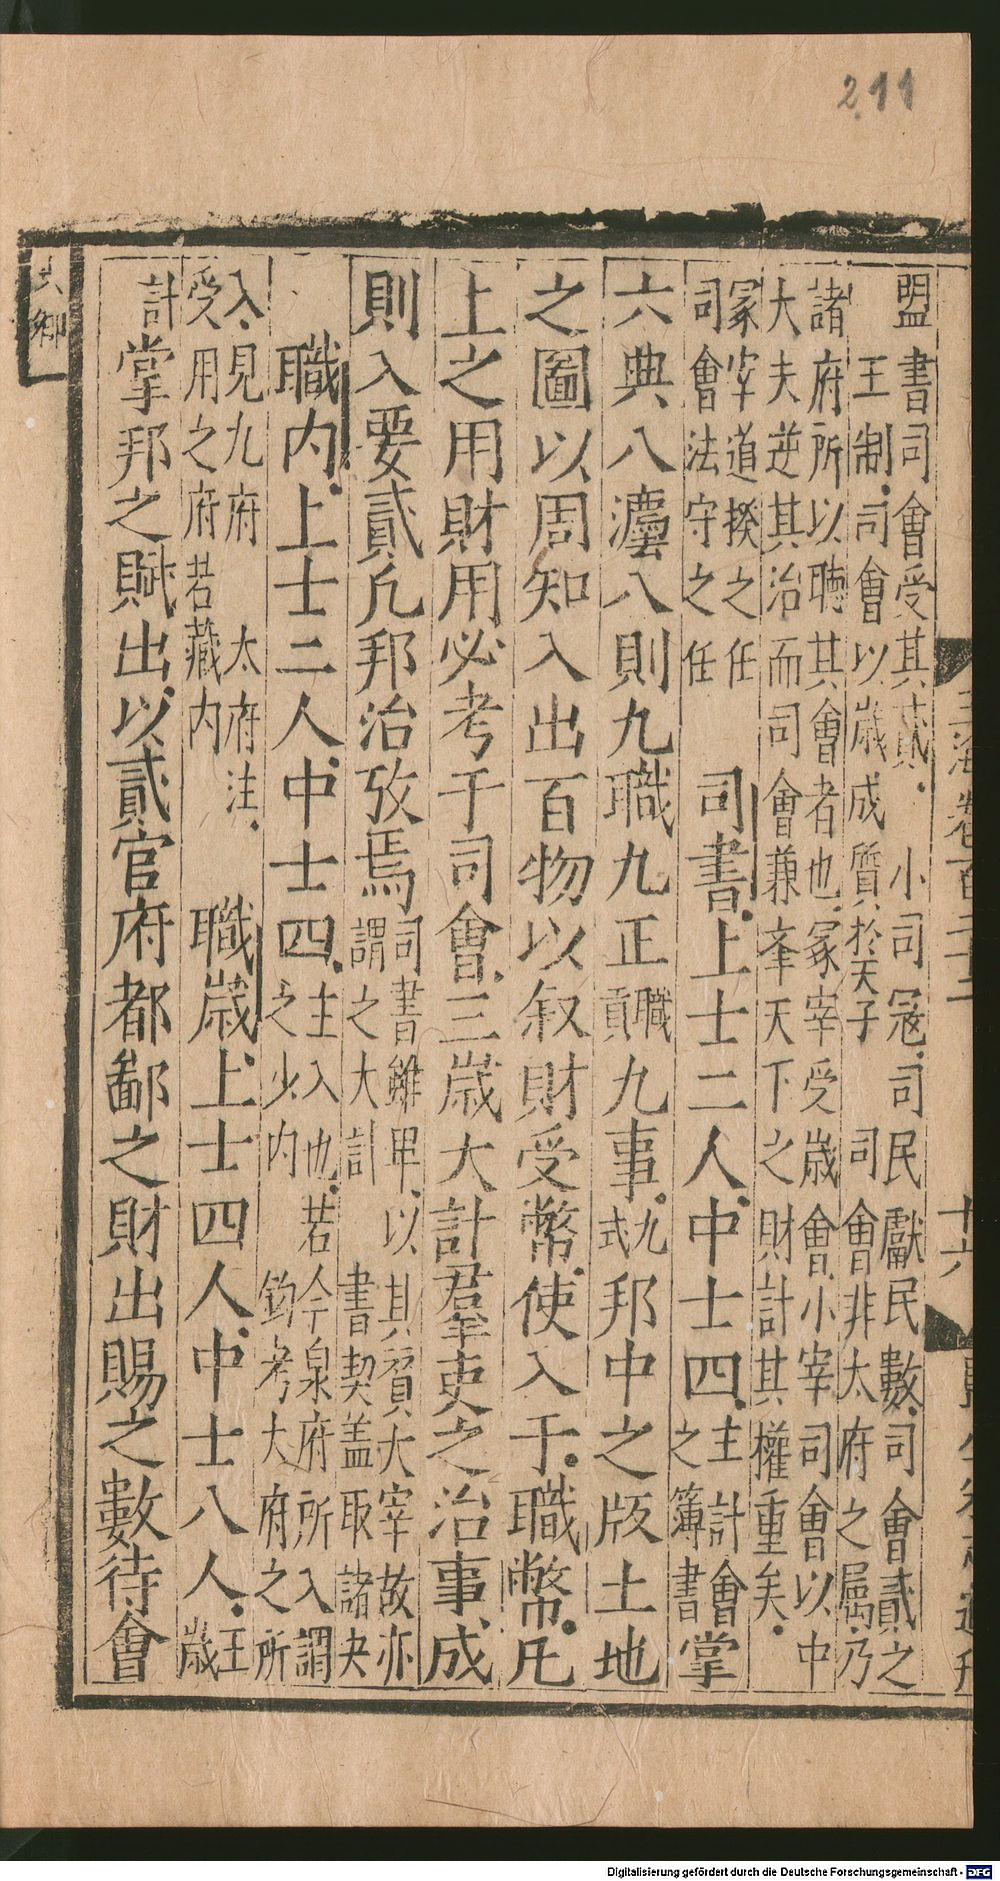 211
盟書司會受其貳小司冦司民獻民數司會貳之
王制司會以歳成質於天子司會非太府之屬乃
諸府所以聽其會者也冢宰受歳會小宰司會以中
大夫逆其治而司會兼奉天下之財計其權重矣
冢宰道揆之任
司會法守之任
司書上士二人中士四主計會
之簿書掌
六典八灋八則九職九正職貢九事九式邦中之版土地
之圖以周知入出百物以叙財受幣使入于職幣凡
上之用財用必考于司會三歳大計羣吏之治事成
則入要貳凡邦治攷焉司書雖卑以其賓大宰故亦
謂之大計書契盖取諸夬
職内上士二人中士四主入也若今泉府所入謂
之少内鈎考大府之所
入見九府太府注
受用之府若藏内職歳上士四人中士八人主歳
計掌邦之賦出以貳官府都鄙之財出賜之數待會
玉海卷百二十三
十六
Digitalisierung gefördert durch die Deutsche Forschungsgemeinschaft - DFG